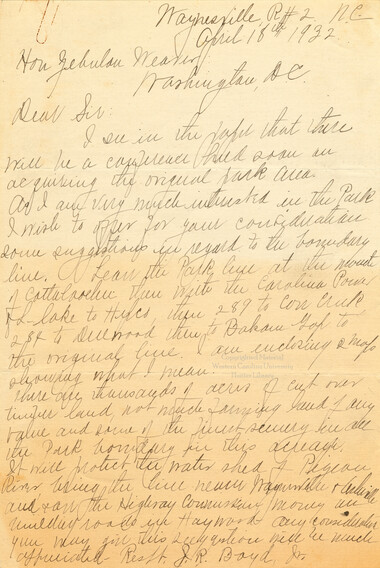 Waynesville, R#2 N.C.
April 18th 1932
Hon Zebulon Weaver
Washington, D.C.
Dear Sir:
I see in the paper that there
will be a conference held soon on
acquiring the original park area.
As I am very much interested in the Park
I wish to offer for your consideration
some suggestions in regard to the boundary
line. Leave the Park line at the mouth
of Cattaloochee then with the Carolina Power
& L. Lake to Hi 289 to Cove Creek
288 to Dellwood then to Balsam Gap to
the original line. I am enclosing a map
showing what I mean.
There are thousands of acres of cut over
timber land, not much farming land of any
value and some of the finest scenery in all
the Park boundary in this acreage.
It will protect the water shed of Pigeon
River bring the line near Waynesville &
and save the Highway Commission money on
roads in Haywood any consideration
you may give this suggestion will be much
appreciated. Resft. J.R. Boyd, Jr.
Western Carolina University